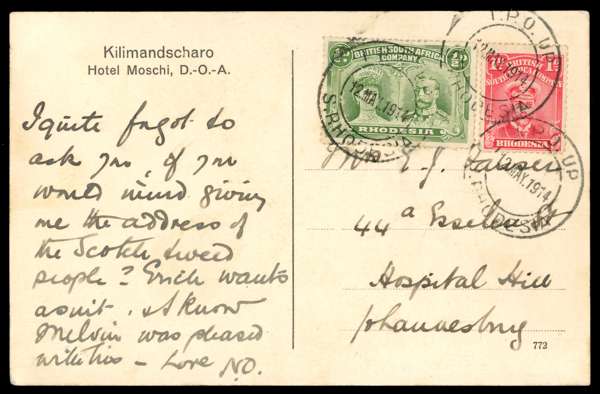 Kilimandscharo
Hotel Moschi, D.-O.-A.
I quite forgot to
ask you, if you
would mind giving
me the address of
the Scotch tweed
people? Erich wants
a suit. I know
Melvin was pleased
with his – Love N.O.
BRITISH SOUTH AFRICA
COMPANY
RHODESIA
BRITISH
RHODESIA
T.P.O. UP
12 MAY. 1914
S. RHODESIA
12 MAY. 1914
RHODESIA
T.P.O. UP
12 MAY. 1914
RHODESIA
E. J.
44a Esselen
Hospital Hill
Johannesburg
773